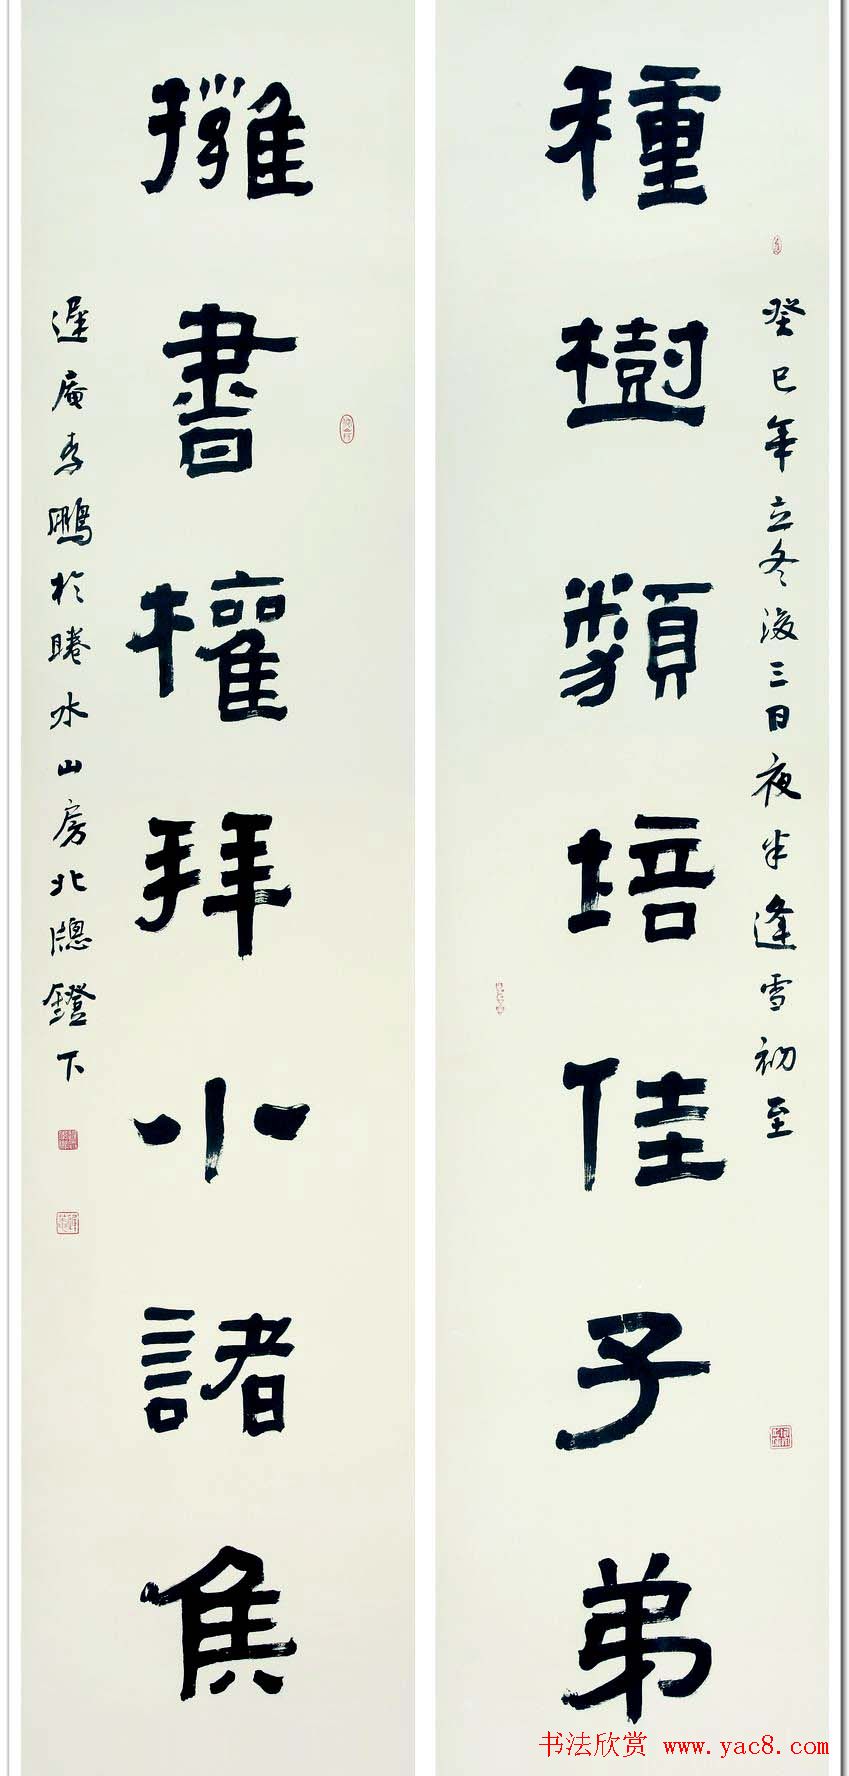 種樹類培佳子弟
癸巳年立冬後三日夜半逢雪初至
擁書權拜小諸侯
遲庵李鵬於睠水山房北牕鐙下
书法欣赏 www.yac8.com